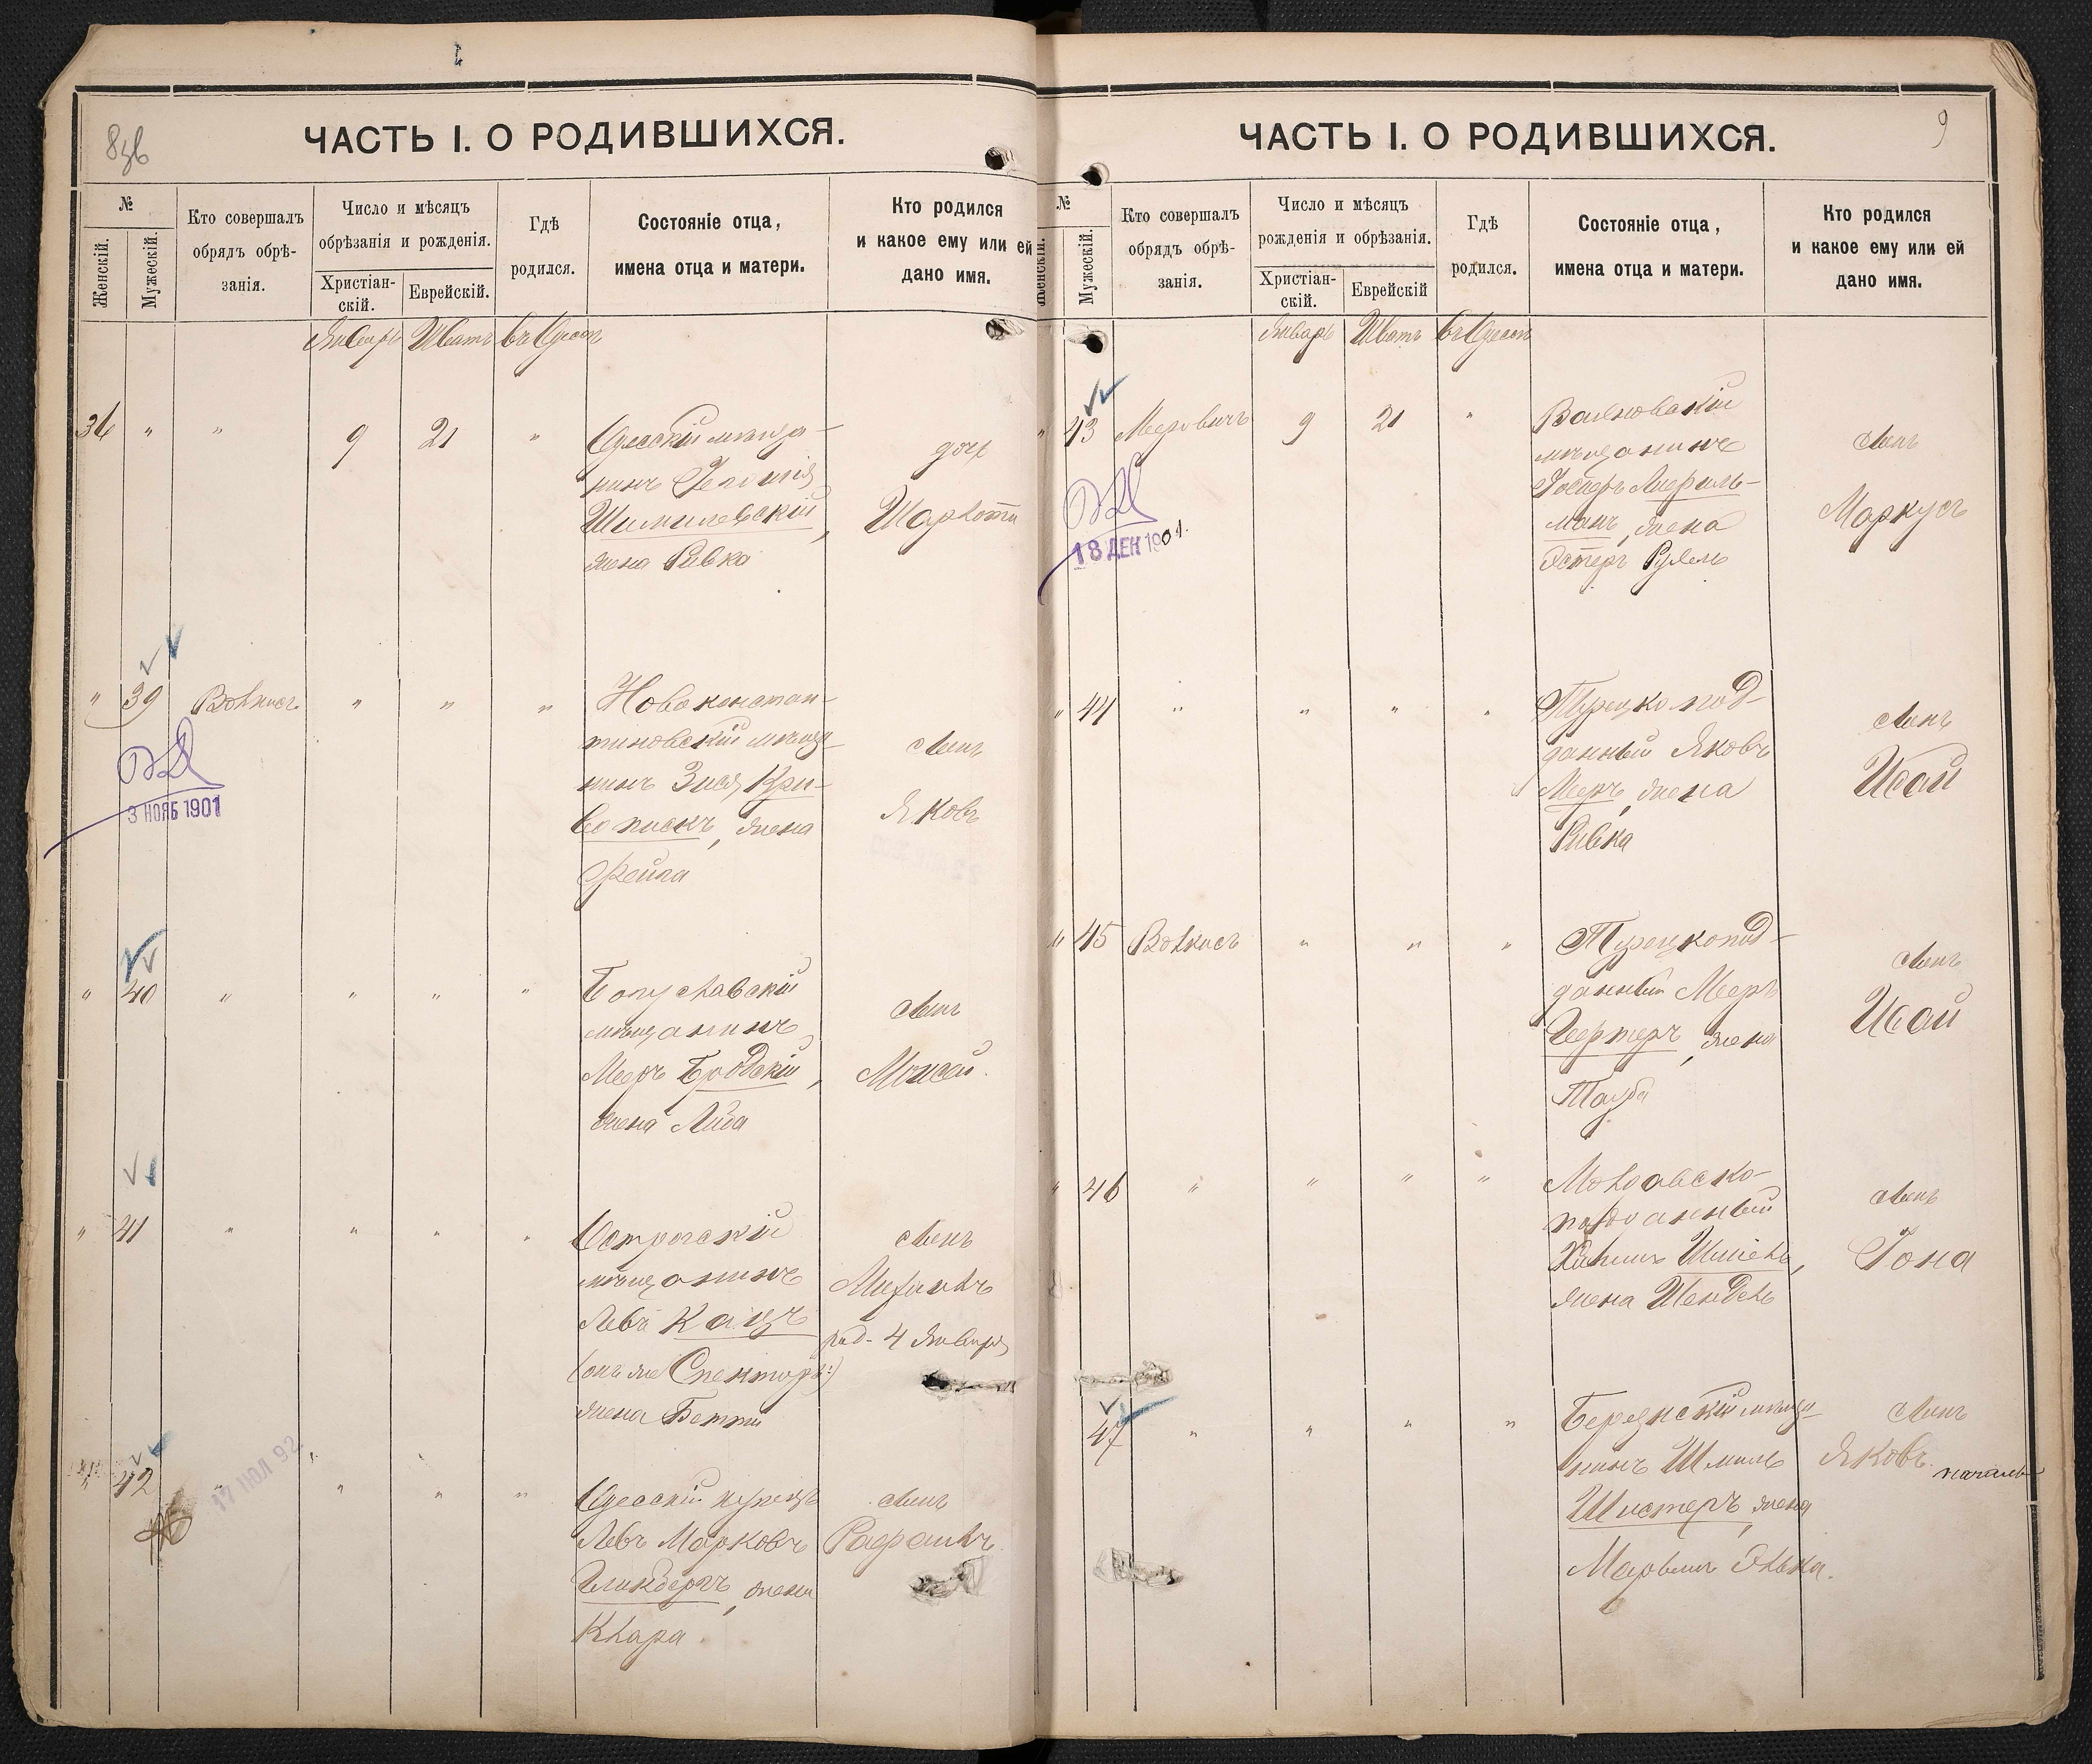 8 зв
ЧАСТЬ I. О РОДИВШИХСЯ.
№
Женскій.
Мужескій.
Кто совершалъ
обрядъ обрѣ-
занія.
Число и мѣсяцъ
обрѣзанія и рожденія.
Христіан-
скій.
Еврейскій.
Гдѣ
родился.
Состояніе отца,
имена отца и матери.
Кто родился
и какое ему или ей
дано имя.
Январь Шватъ въ Одессѣ
36 " " 9 21 "
Одесскій мѣща-
нинъ
Шимилевскій,
жена Ривка
дочь
Шарлотта
" 39 Волкисъ " " "
Новоконстан-
тиновскій мѣща-
нинъ Зися Кри-
вопискъ, жена
Фейга
сынъ
Яковъ
3 НОЯБ 1901
" 40 " " " "
Богуславскій
мѣщанинъ
Мееръ Бродскій,
жена Либа
сынъ
Моисей.
" 41 " " " "
Острогскій
мѣщанинъ
Левъ Кацъ
(онъ же Спекторъ)
жена Бетти
сынъ
Михаилъ
род. 4 Января
" 42 " " " "
17 ЮЛ 92
Одесскій купецъ
Левъ Марковъ
Гликбергъ, жена
Клара.
сынъ
Рафаилъ.
9
ЧАСТЬ I. О РОДИВШИХСЯ.
№
Женскій.
Мужескій.
Кто совершалъ
обрядъ обрѣ-
занія.
Число и мѣсяцъ
рожденія и обрѣзанія.
Христіан-
скій.
Еврейскій
Гдѣ
родился.
Состояніе отца,
имена отца и матери.
Кто родился
и какое ему или ей
дано имя.
Январь Шватъ въ Одессѣ
" 43 Мееровичъ 9 21 "
мѣщанинъ
манъ, жена
Эстеръ Рухель
сынъ
Маркусъ
18 ДЕК 1901.
" 44 " " " "
Турецкопод-
данный Яковъ
Меръ, жена
Ривка
сынъ
Исай
" 45 Волкисъ " " "
Турецкопод-
данный Мееръ
Гертеръ, жена
Тауба
сынъ
Исай
" 46 " " " "
Молдавско-
подданный
жена Шендель
сынъ
Іона
47 " " " "
мѣща-
нинъ Шмиль
Шистеръ, жена
Марьямъ Элька.
сынъ
Яковъ